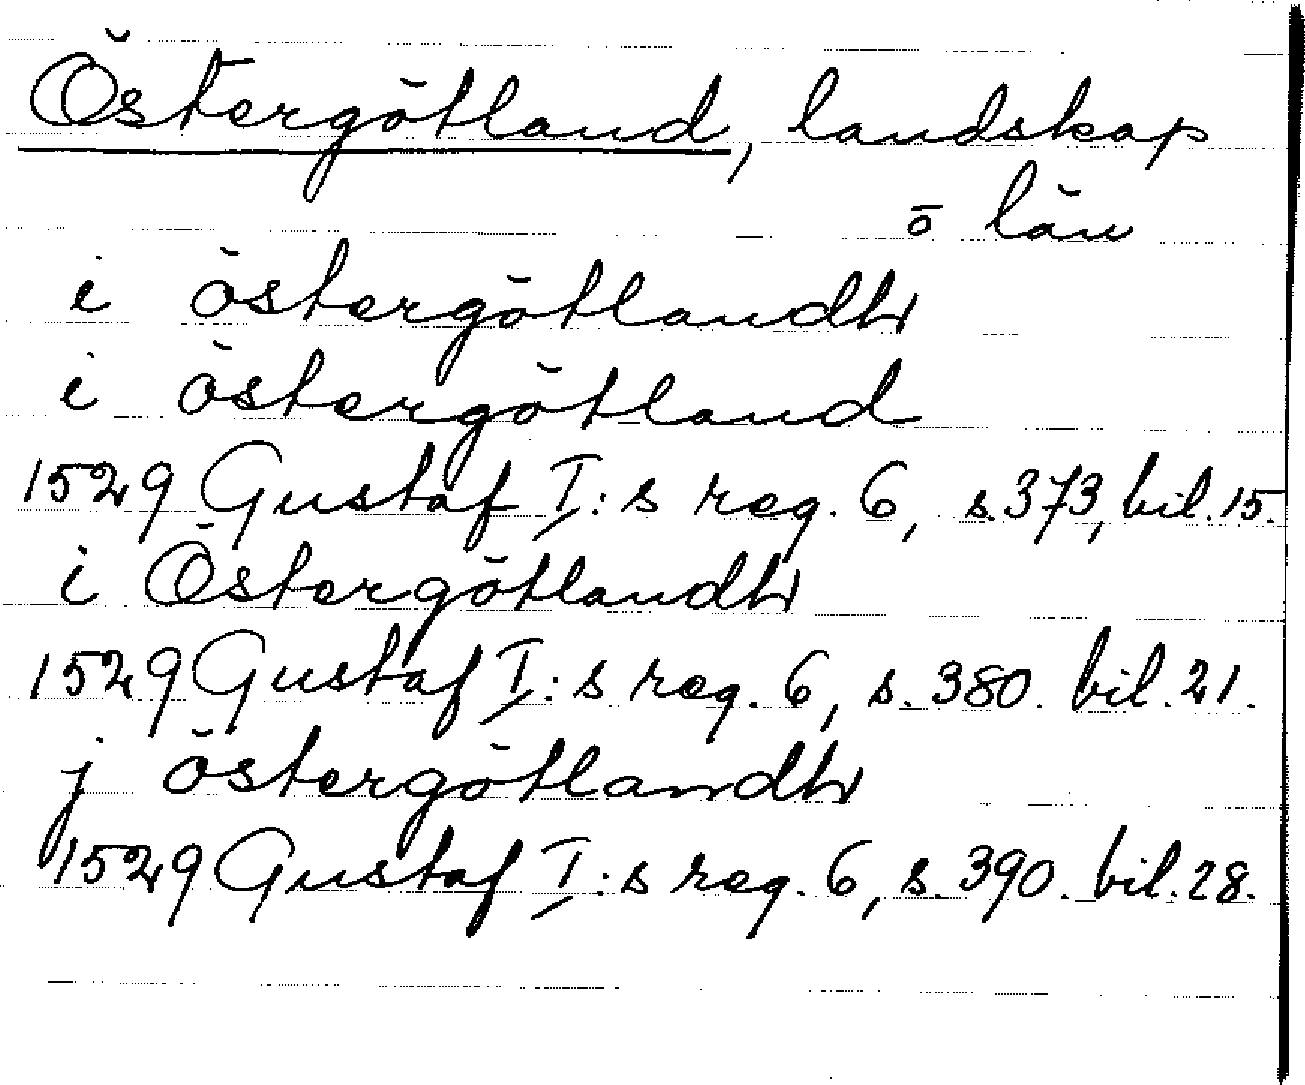 Östergötland, landskap
o län
i östergötlandh
i östergötland
1529 Gustaf I:s reg. 6, s. 373, bil. 15.
i Östergötlandh
1529 Gustaf I:s reg. 6, s. 380. bil. 21.
j östergötlandh
1529 Gustaf I:s reg. 6, s. 390. bil. 28.